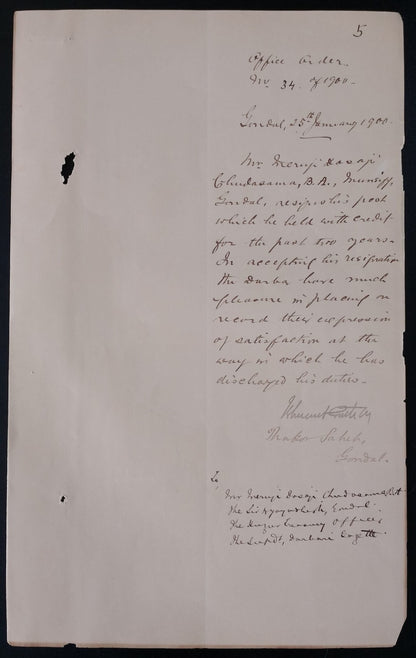 5
Office Order.
No. 34. of 1900.
Gondal, 25th January 1900.
Mr. Meruji Dasaji
Chudasama, B.A., Munsiff,
Gondal, resigns his post
which he held with credit
for the past two years.
In accepting his resignation
the Durbar have much
pleasure in placing on
record their expression
of satisfaction at the
way in which he has
discharged his duties.
Thakor Saheb,
Gondal.
To
Mr Meruji Dasaji Chudasama
The Sir Nyayadhish, Gondal
The Huzur Offices
The Supdt, Darbari Gazette.